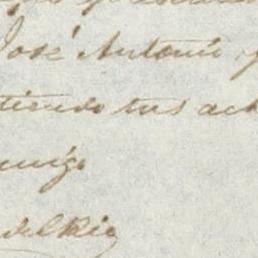 José Antonio y
tiendo tus ach
amigo
del Rio